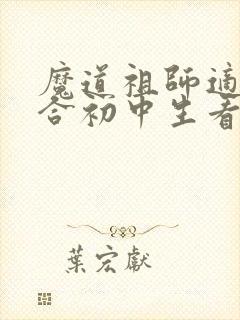 魔道祖師適
合初中生看
葉宏獻